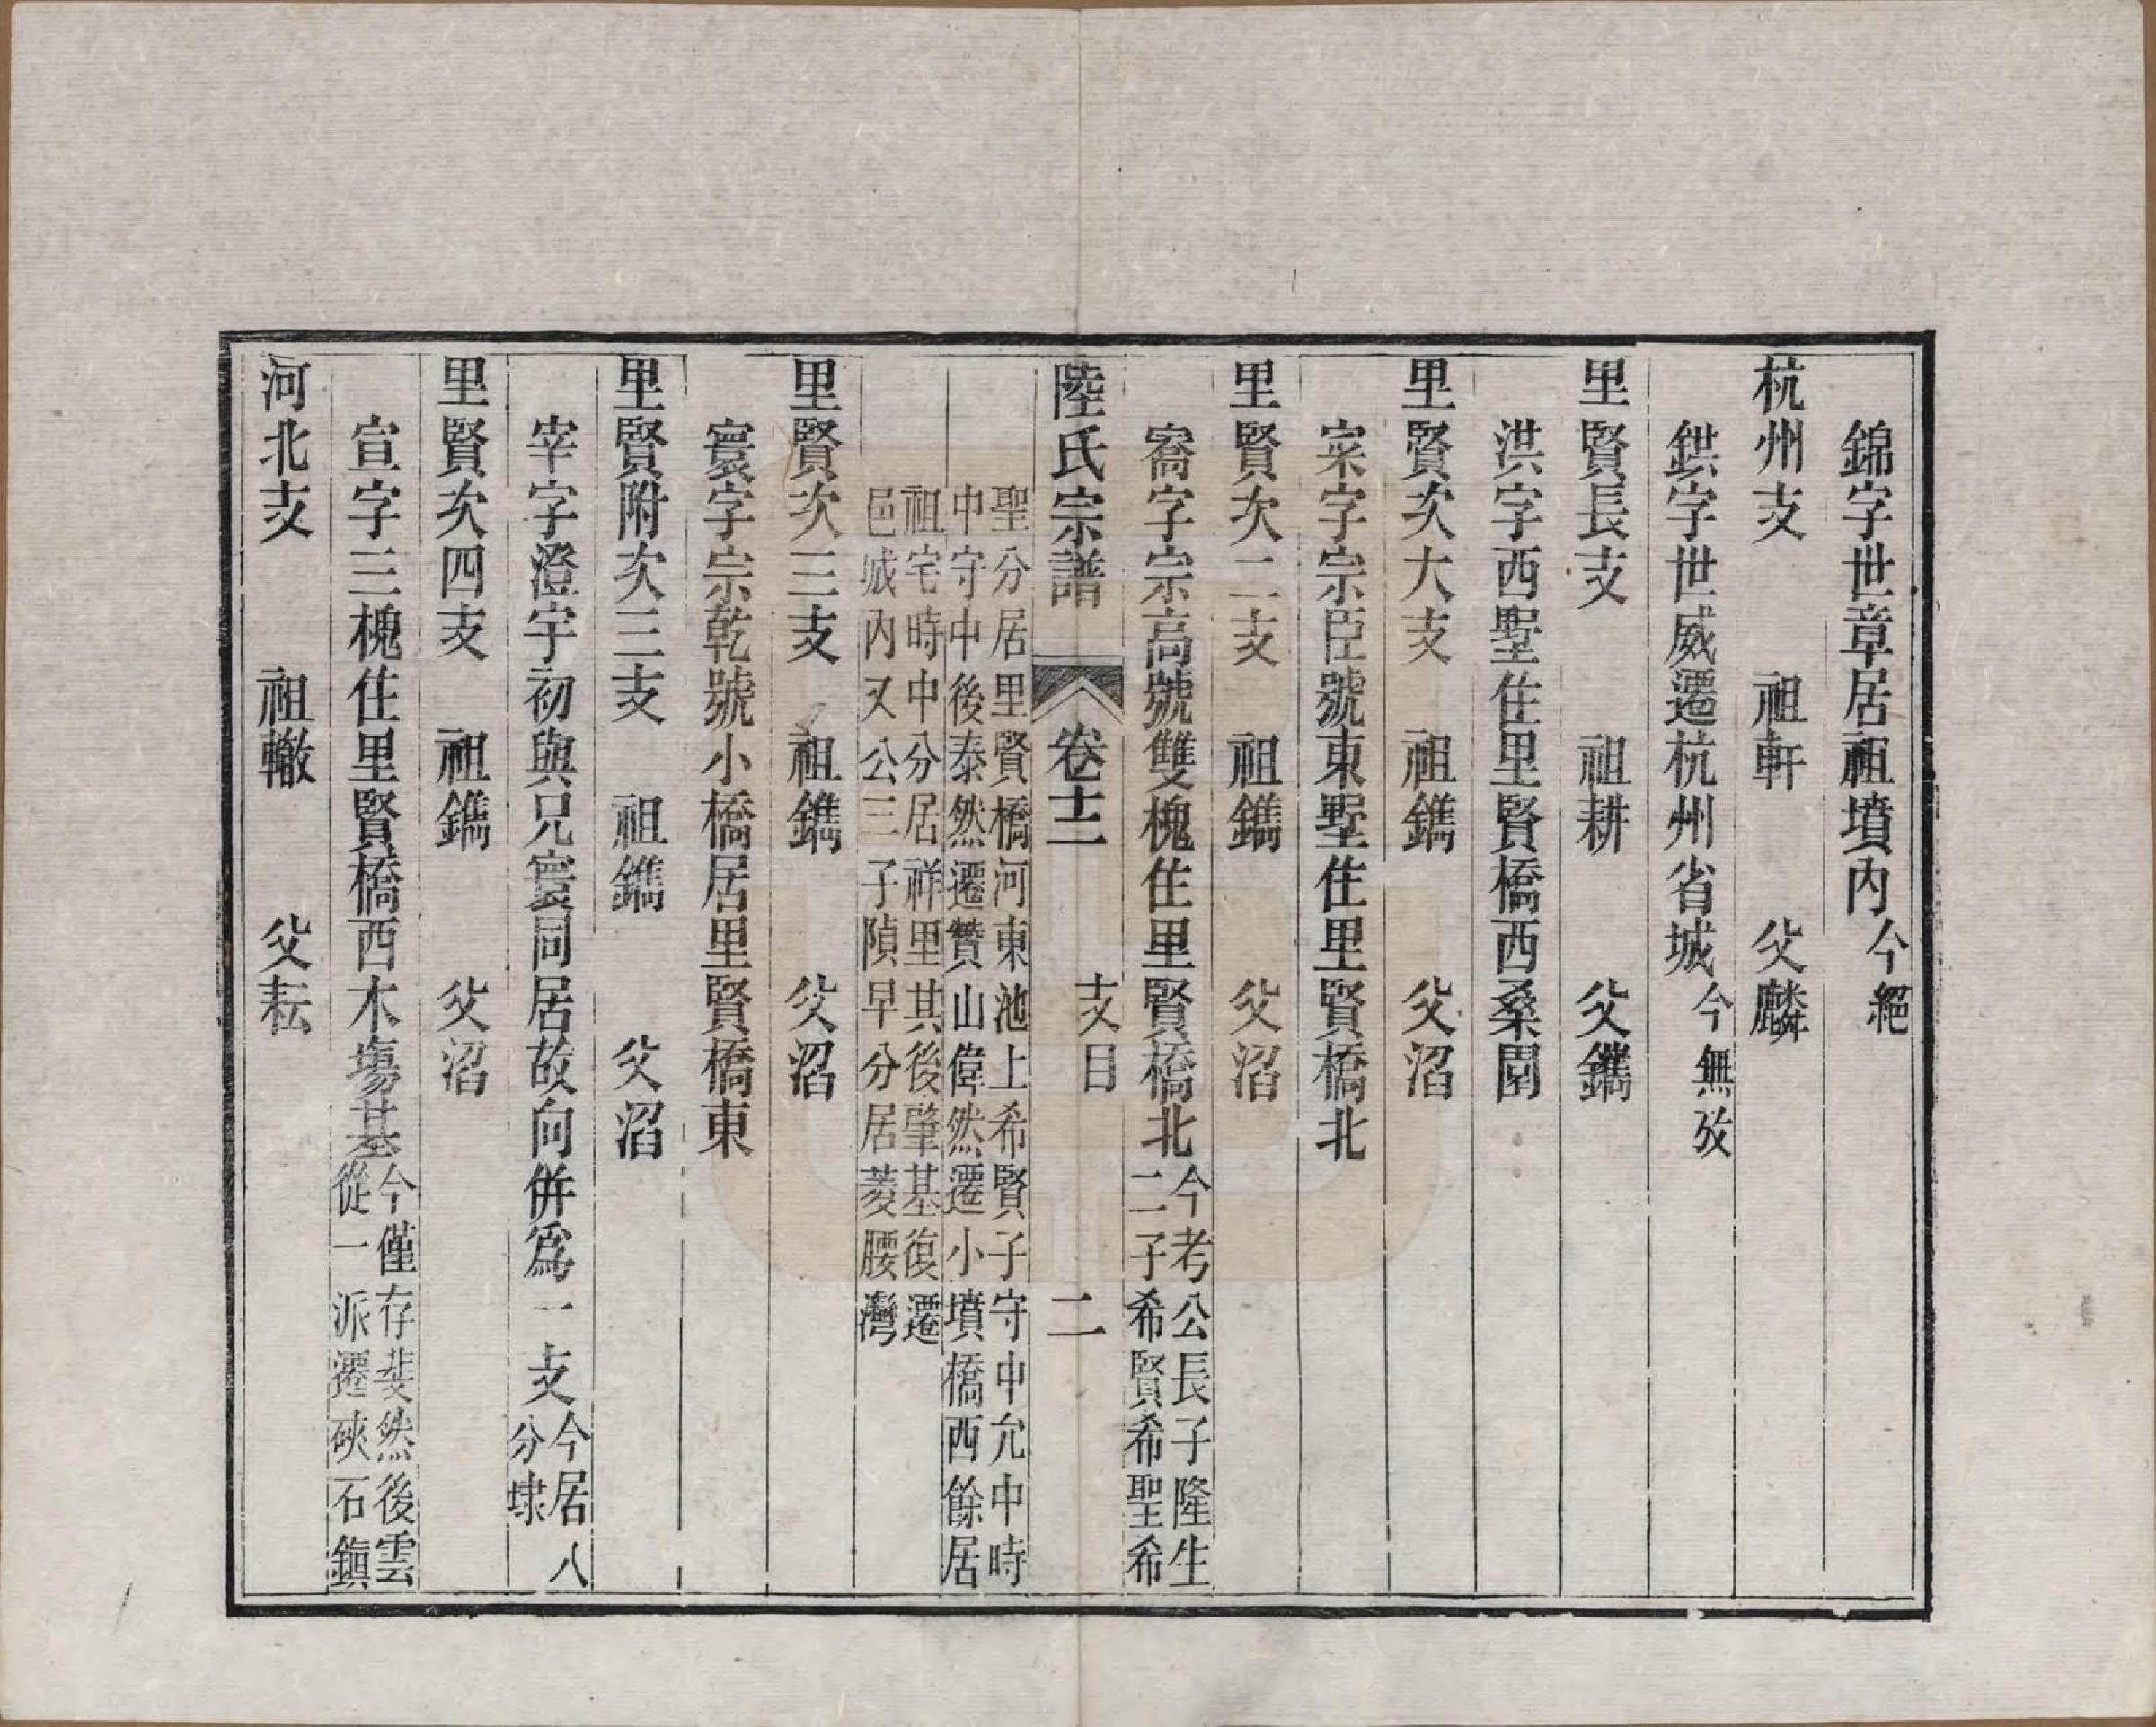 錦字世章居祖墳內今絕
杭州支　祖軒　父麟
鉷字世威遷杭州省城今無攷
里賢長支　祖耕　父鐫
洪字西墅住里賢橋西桑園
里賢次大支　祖鐫　父沼
寀字宗臣號東墅住里賢橋北
里賢次二支　祖鐫　父沼
喬字宗高號雙槐住里賢橋北今考公長子隆生
二子希賢希聖希
陸氏宗譜　卷十二　支目　二
聖分居里賢橋河東池上希賢子守中允中時
中守中後泰然遷贊山偉然遷小墳橋西餘居
祖宅時中分居祥里其後肇基復遷
邑城內又公三子隕早分居菱腰灣
里賢次三支　祖鐫　父沼
寰字宗乾號小橋居里賢橋東
里賢附次三支　祖鐫　父沼
宰字澄宇初與兄寰同居故向併爲一支今居八
分埭
里賢次四支　祖鐫　父沼
宣字三槐住里賢橋西木塲基今僅存斐然後雲
從一派遷硤石鎭
河北支　祖轍　父耘